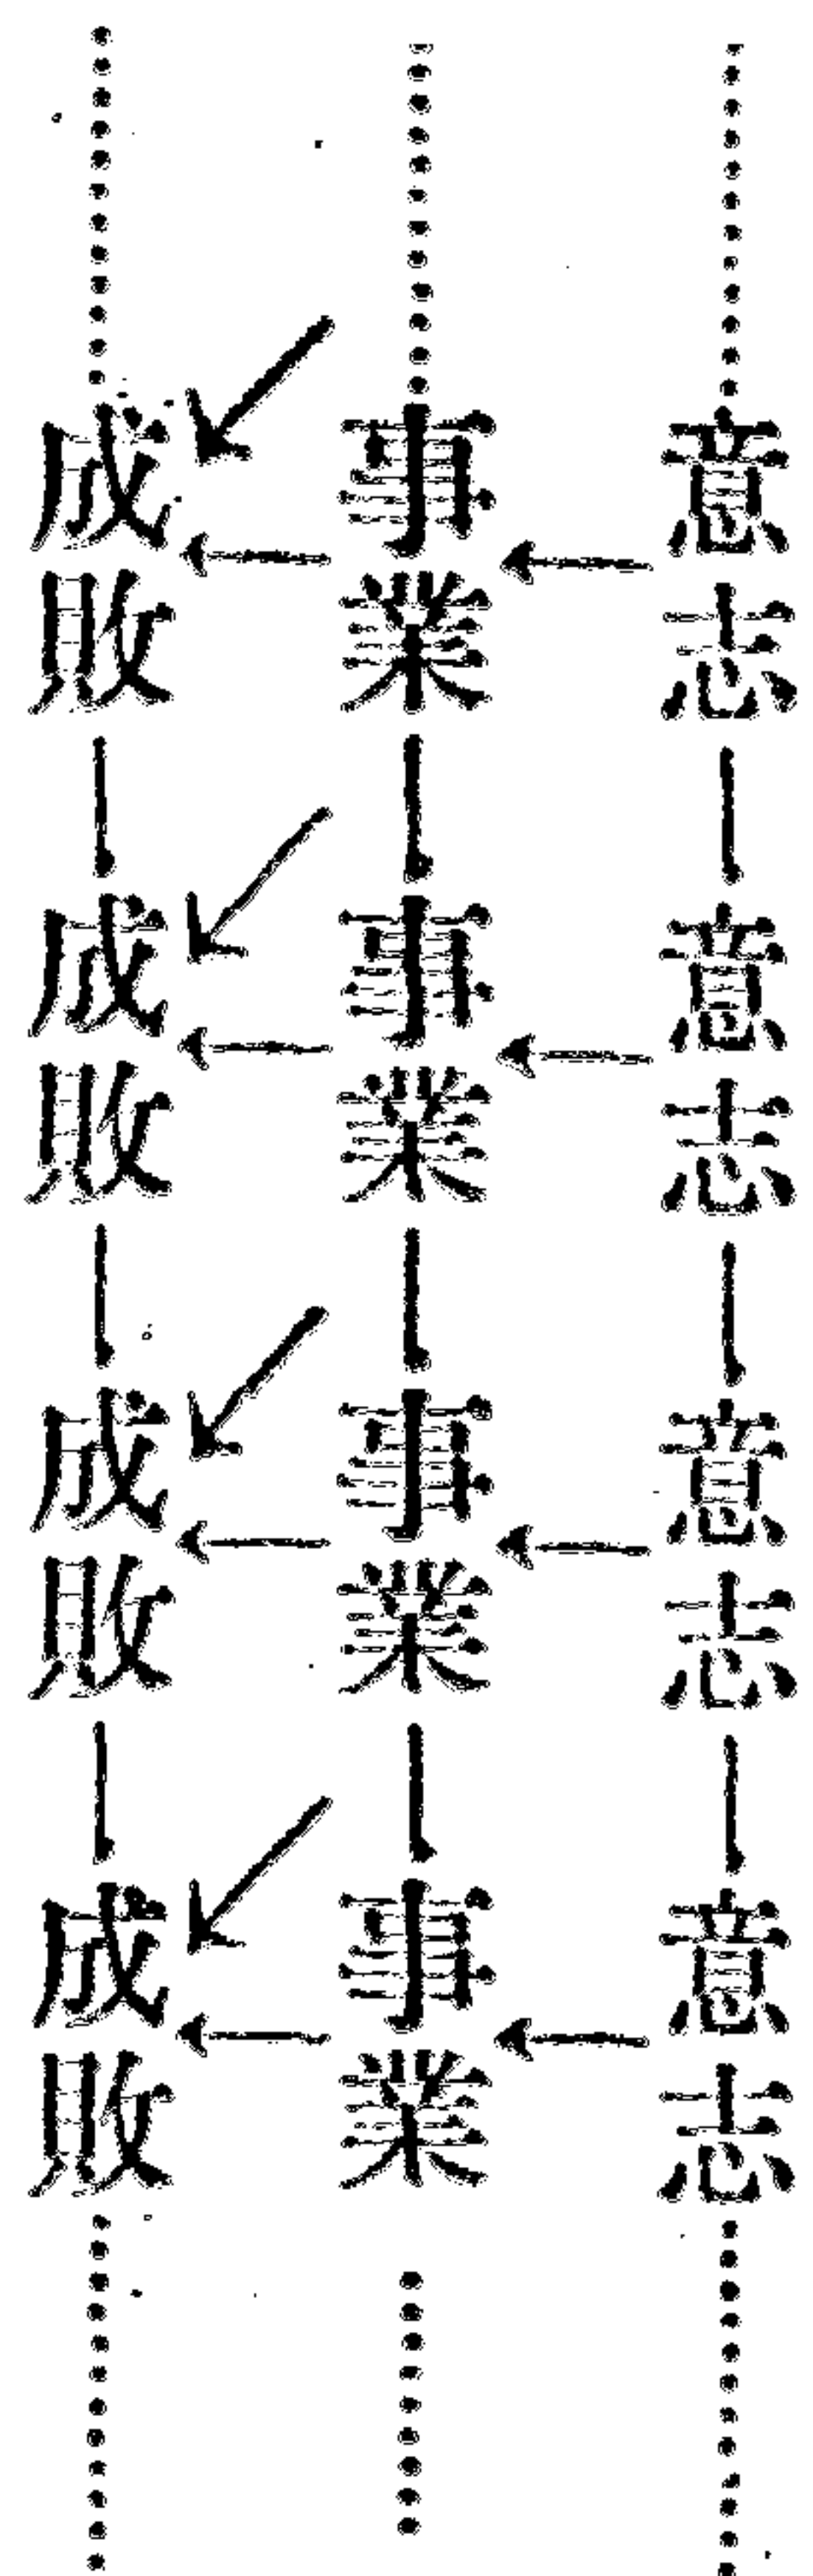 意志 意志 意志 意志
事業 事業 事業 事業
成敗 成敗 成敗 成敗